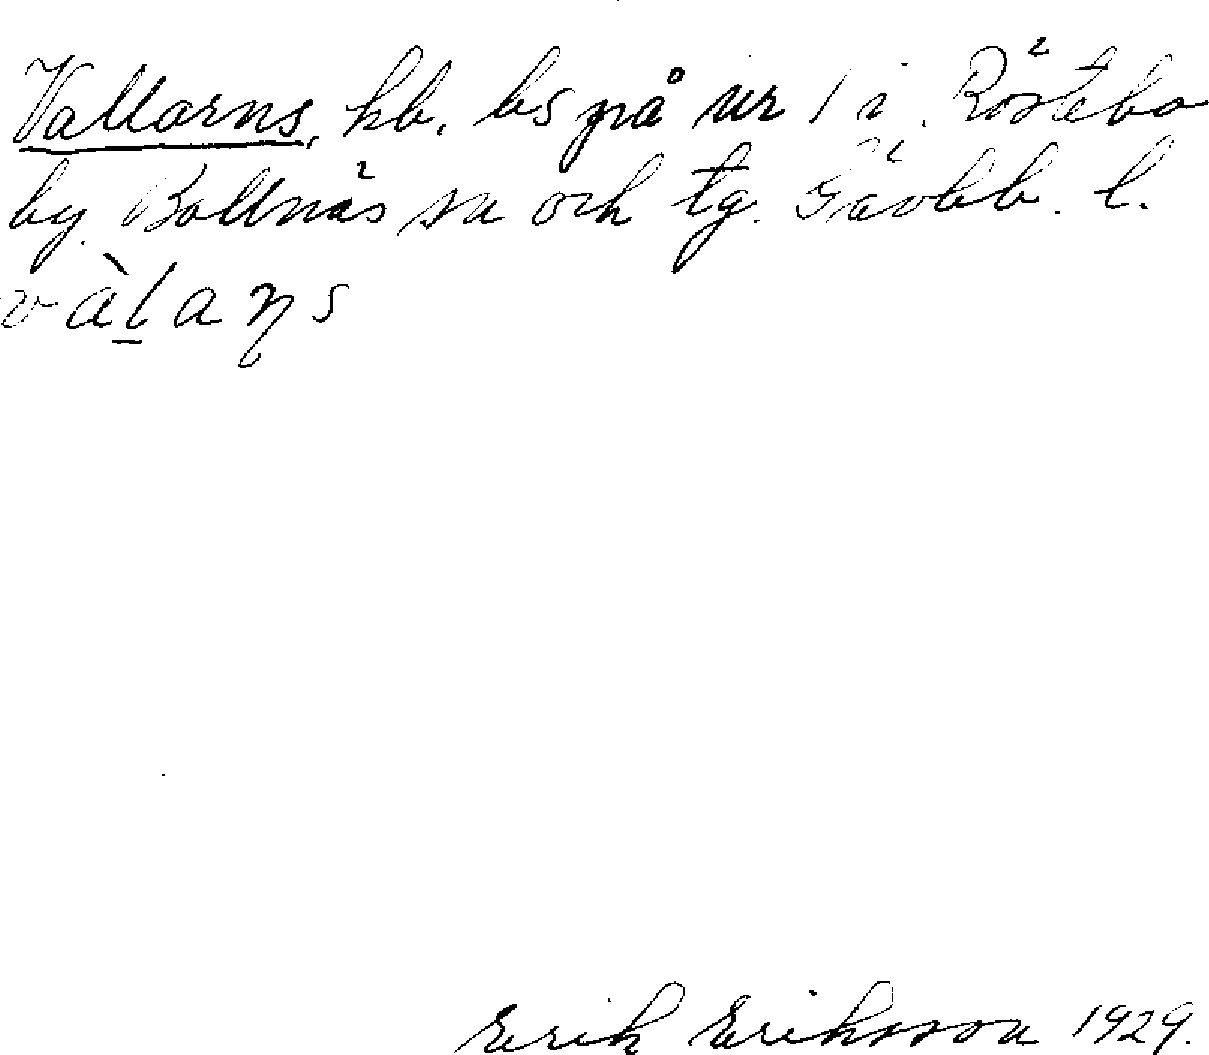 Vallarns, hb. bs på nr 1 i Röstebo
by. Bollnäs sn och tg. Gävleb. l.
vàḻaṇs
Erik Eriksson 1929.